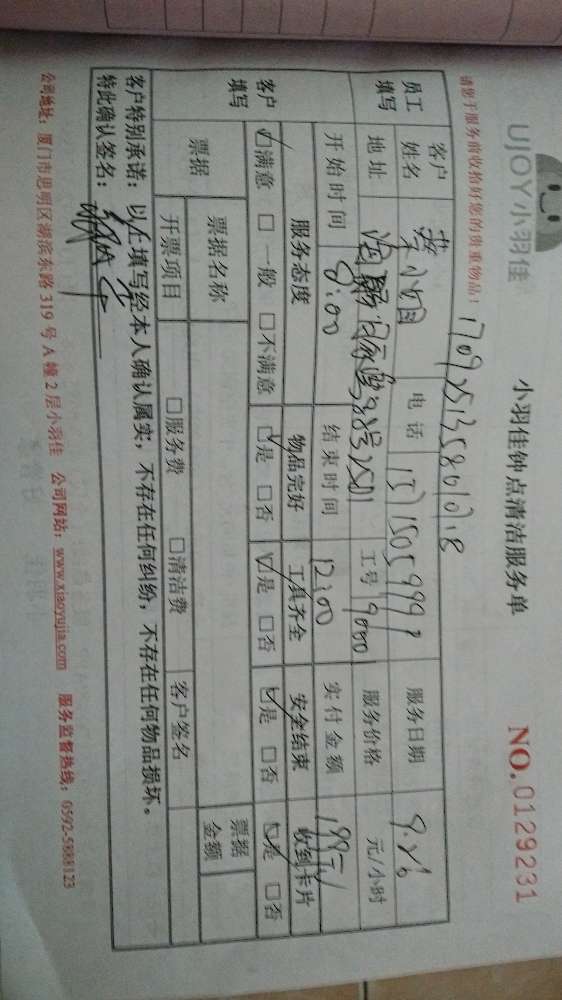 UJOY小羽佳
小羽佳钟点清洁服务单
NO.0129231
请您于服务前收拾好您的贵重物品！
员工填写 客户姓名 电话 服务日期 9.26
地址 工号 9000 服务价格 元/小时
开始时间 8:00 结束时间 12:00 实付金额 199元
客户填写 服务态度 物品完好 工具齐全 安全结束 收到卡片
☑满意 □一般 □不满意 ☑是 □否 ☑是 □否 ☑是 □否 ☑是 □否
票据 票据名称 票据金额
开票项目 □服务费 □清洁费 客户签名
客户特别承诺：以上填写经本人确认属实，不存在任何纠纷，不存在任何物品损坏。
特此确认签名：
公司地址：厦门市思明区湖滨东路319号A幢2层小羽佳 公司网站：www.xiaoyujia.com 服务监督热线：0592-5888123